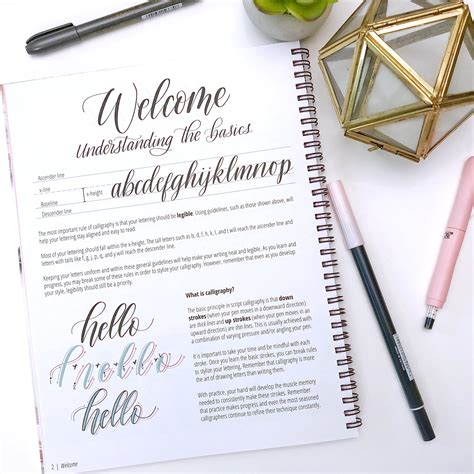 Welcome
Understanding the basics
Ascender line
x-line
Baseline
x-height
Descender line
abcdefghijklmnop
The most important rule of calligraphy is that your lettering should be legible. Using guidelines, such as those shown above, will
help your lettering stay aligned and easy to read.
Most of your lettering should fall within the x-height. The tall letters such as b, d, f, h, k, l, and t will reach the ascender line and
letters with tails like f, g, j, p, q, and y will reach the descender line.
Keeping your letters uniform and within these general guidelines will help make your writing neat and legible. As you learn and
progress, you may break some of these rules in order to stylize your calligraphy. However, remember that even as you develop
your style, legibility should still be a priority.
What is calligraphy?
The basic principle in script calligraphy is that down
strokes (when your pen moves in a downward direction)
are thick lines and up strokes (when your pen moves in an
upward direction) are thin lines. This is usually achieved with
a combination of varying pressure and/or angling your pen.
hello
hello
hello
It is important to take your time and be mindful with each
stroke. Once you learn the basic strokes, you can break
letters down into strokes. Remember calligraphy is more like
the art of drawing letters than writing them.
With practice, your hand will develop the muscle memory
needed to consistently make these strokes. Remember that
practice makes progress and even the most seasoned
calligraphers continue to refine their technique constantly.
2 | Welcome